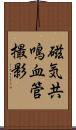 磁気共
鳴血管
撮影